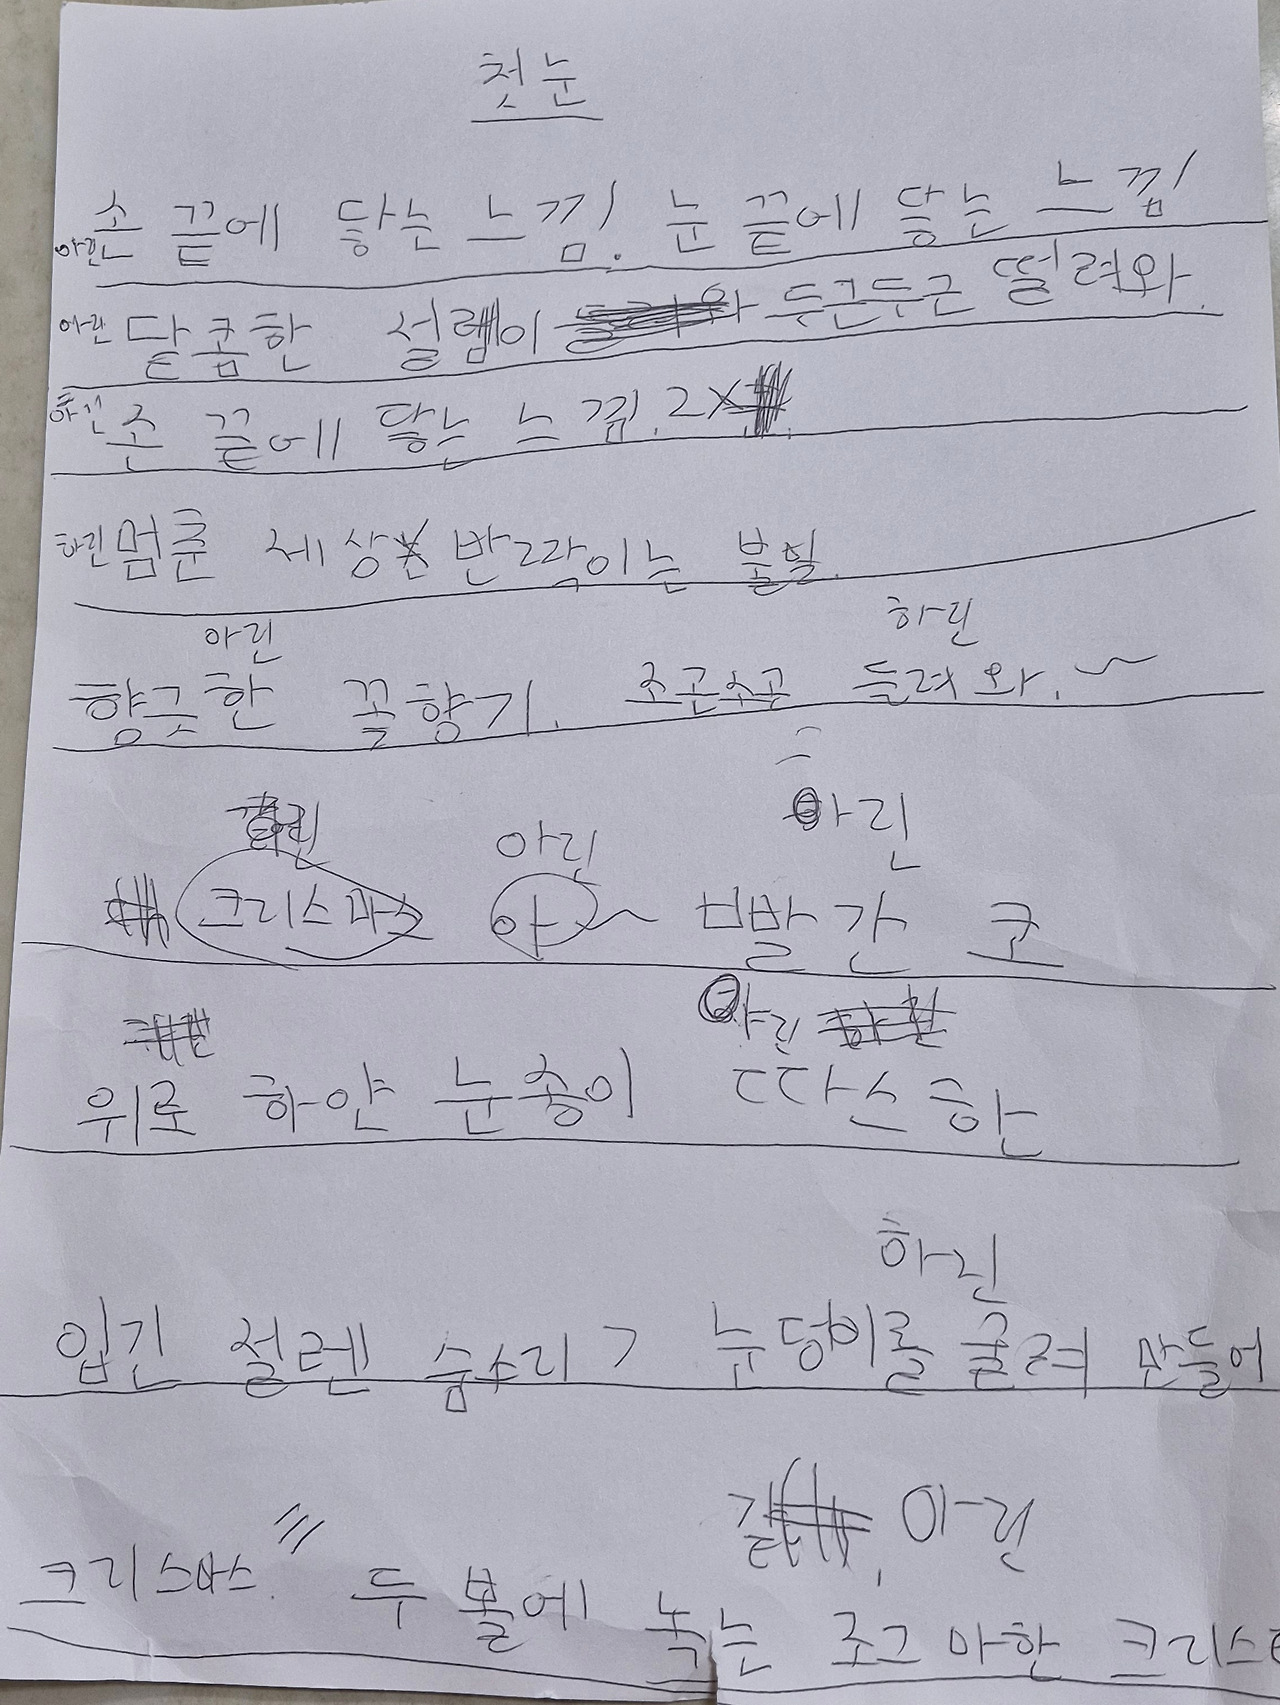 첫눈
손 끝에 닿는 느낌. 눈 끝에 닿는 느낌
아린
아린 달콤한 설렘이 두근두근 떨려와.
하린 손 끝에 닿는 느낌. 2X
하린 멈춘 세상 반짝이는 불빛.
아린 하린
향긋한 꽃향기. 소근소근 들려와.~
아린 아린
크리스마스 아~ 빨간 코
아린
위로 하얀 눈송이 따스한
하린
입긴 설렌 숨소리 눈덩이를 굴려 만들어
아린
크리스마스. 두 볼에 녹는 조그마한 크리스